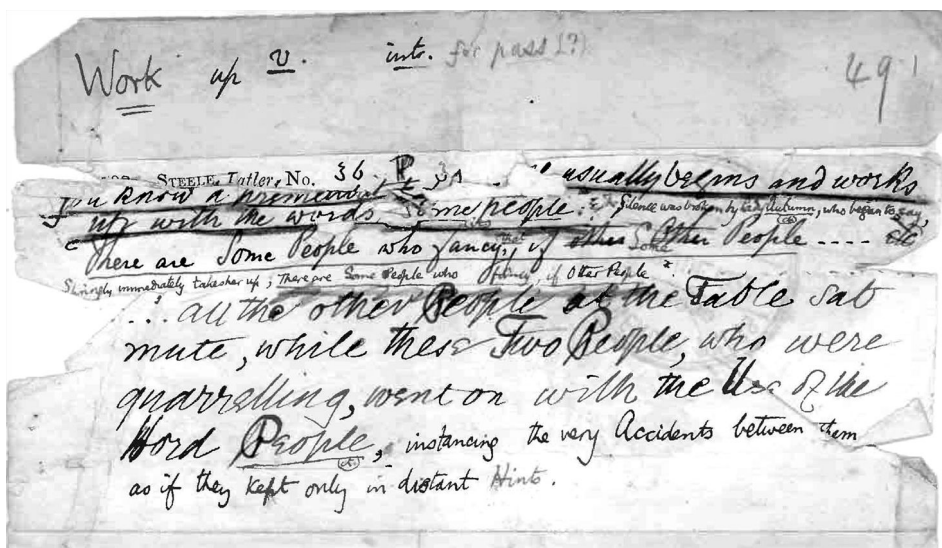 Work up v. intr. for pass (?) 491
STEELE, Tatler, No. 36 P
usually begins and works
You know a premeditated
up with the words, some people: Silence was broken by Lady Autumn, who began to say,
There are Some People who fancy, that if Some Other People ---- etc
Shrugly immediately takes her up; There are Some People who fancy, if Other People
... all the other People at the Table sat
mute, while these Two People, who were
quarrelling, went on with the Use of the
Word People, instancing the very Accidents between them
as if they kept only in distant Hints.